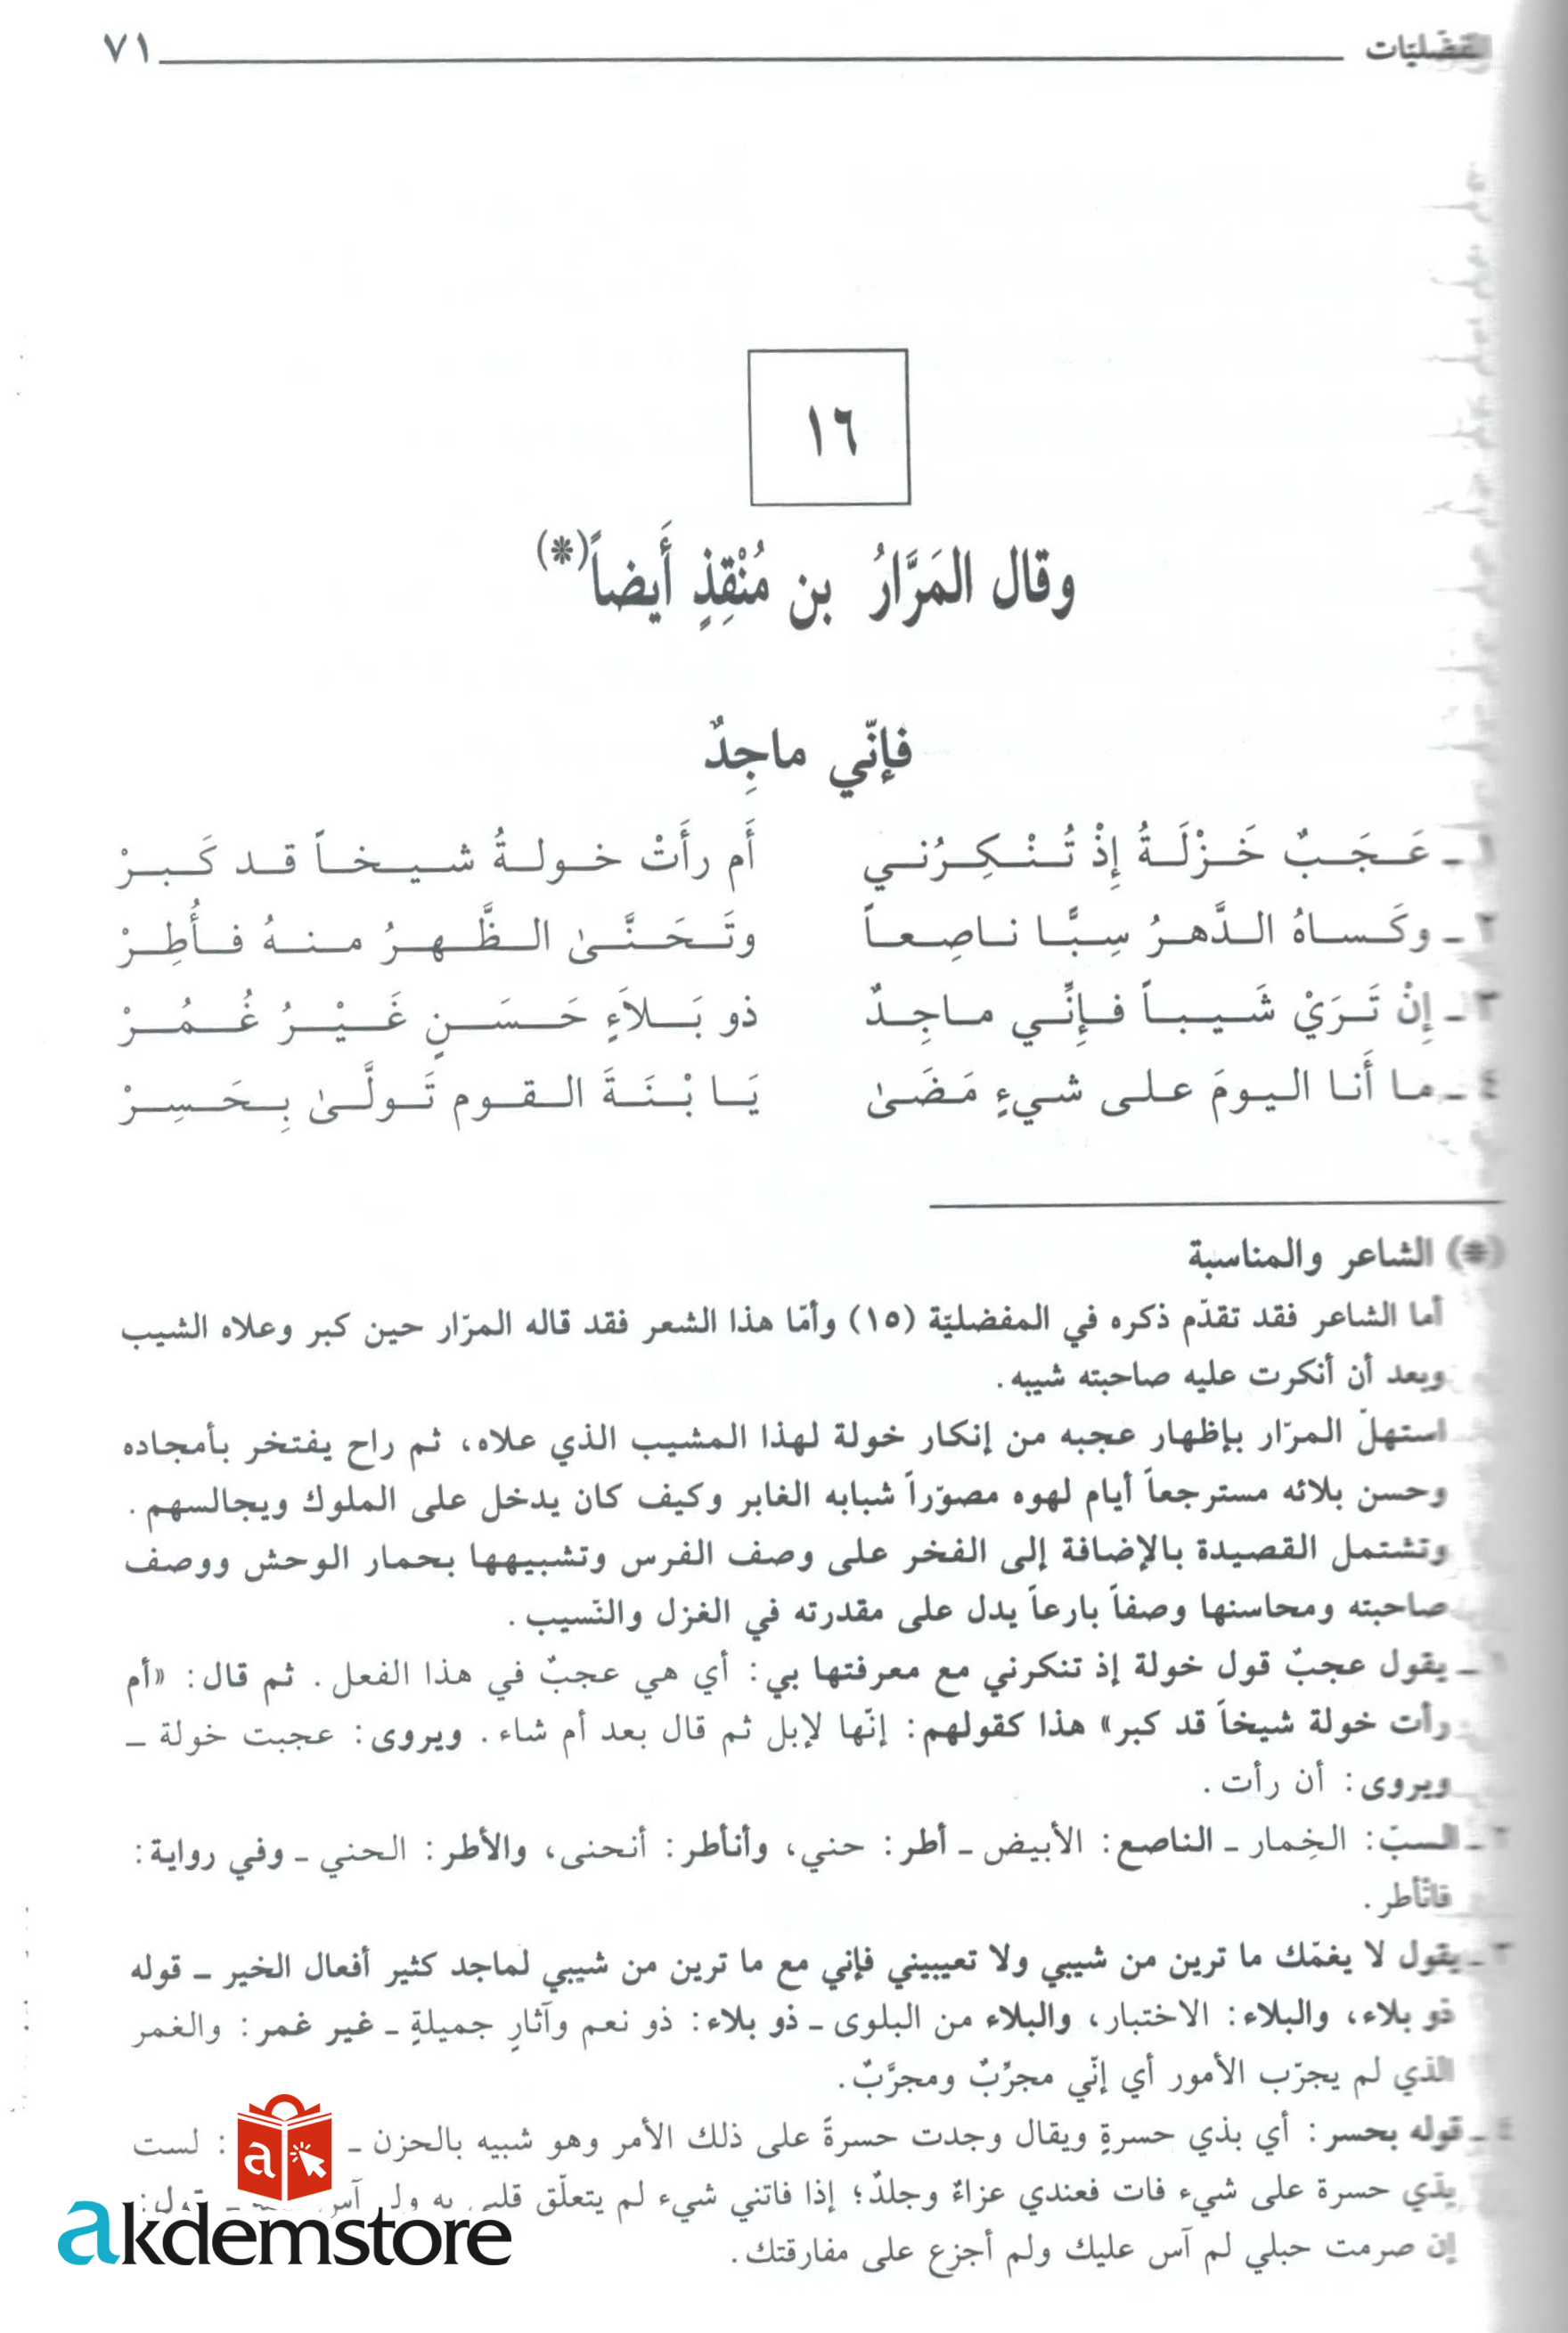 المفضّليّات ٧١
١٦
وقال المَرَّارُ بن مُنْقِذٍ أَيضاً(*)
فإنّي ماجِدٌ
١ ـ عَـجَـبٌ خَـزْلَـةُ إِذْ تُـنْـكِـرُنـي أَم رأَتْ خـولـةُ شـيـخـاً قـد كَـبـرْ
٢ ـ وكَـسـاهُ الـدَّهـرُ سِـبًّـا نـاصِـعـاً وتَـحَـنَّـىٰ الـظَّـهـرُ مـنـهُ فـأُطِـرْ
٣ ـ إِنْ تَـرَيْ شَـيـبـاً فـإِنِّـي مـاجِـدٌ ذو بَـلاَءٍ حَـسَـنٍ غَـيْـرُ غُـمُـرْ
٤ ـ مـا أَنـا الـيـومَ عـلـى شـيءٍ مَـضَـىٰ يَـا بْـنَـةَ الـقـوم تَـولَّـىٰ بِـحَـسِـرْ
(*) الشاعر والمناسبة
أما الشاعر فقد تقدّم ذكره في المفضليّة (١٥) وأمّا هذا الشعر فقد قاله المرّار حين كبر وعلاه الشيب
وبعد أن أنكرت عليه صاحبته شيبه.
استهلّ المرّار بإظهار عجبه من إنكار خولة لهذا المشيب الذي علاه، ثم راح يفتخر بأمجاده
وحسن بلائه مسترجعاً أيام لهوه مصوّراً شبابه الغابر وكيف كان يدخل على الملوك ويجالسهم.
وتشتمل القصيدة بالإضافة إلى الفخر على وصف الفرس وتشبيهها بحمار الوحش ووصف
صاحبته ومحاسنها وصفاً بارعاً يدل على مقدرته في الغزل والنّسيب.
١ ـ يقول عجبٌ قول خولة إذ تنكرني مع معرفتها بي: أي هي عجبٌ في هذا الفعل. ثم قال: «أم
رأت خولة شيخاً قد كبر» هذا كقولهم: إنّها لإبل ثم قال بعد أم شاء. ويروى: عجبت خولة ـ
ويروى: أن رأت.
٢ ـ السبّ: الخِمار ـ الناصع: الأبيض ـ أطر: حني، وأنأطر: أنحنى، والأطر: الحني ـ وفي رواية:
فانْأطر.
٣ ـ يقول لا يغمّك ما ترين من شيبي ولا تعيبيني فإني مع ما ترين من شيبي لماجد كثير أفعال الخير ـ قوله
ذو بلاء، والبلاء: الاختبار، والبلاء من البلوى ـ ذو بلاء: ذو نعم وآثارٍ جميلةٍ ـ غير غمر: والغمر
الذي لم يجرّب الأمور أي إنّي مجرِّبٌ ومجرَّبٌ.
٤ ـ قوله بحسر: أي بذي حسرةٍ ويقال وجدت حسرةً على ذلك الأمر وهو شبيه بالحزن ـ : لست
بذي حسرة على شيء فات فعندي عزاءٌ وجلدٌ؛ إذا فاتني شيء لم يتعلّق قلبي به ولم آس
إن صرمت حبلي لم آس عليك ولم أجزع على مفارقتك.
a
akdemstore